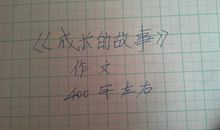 《成长的故事》
作文
400字左右